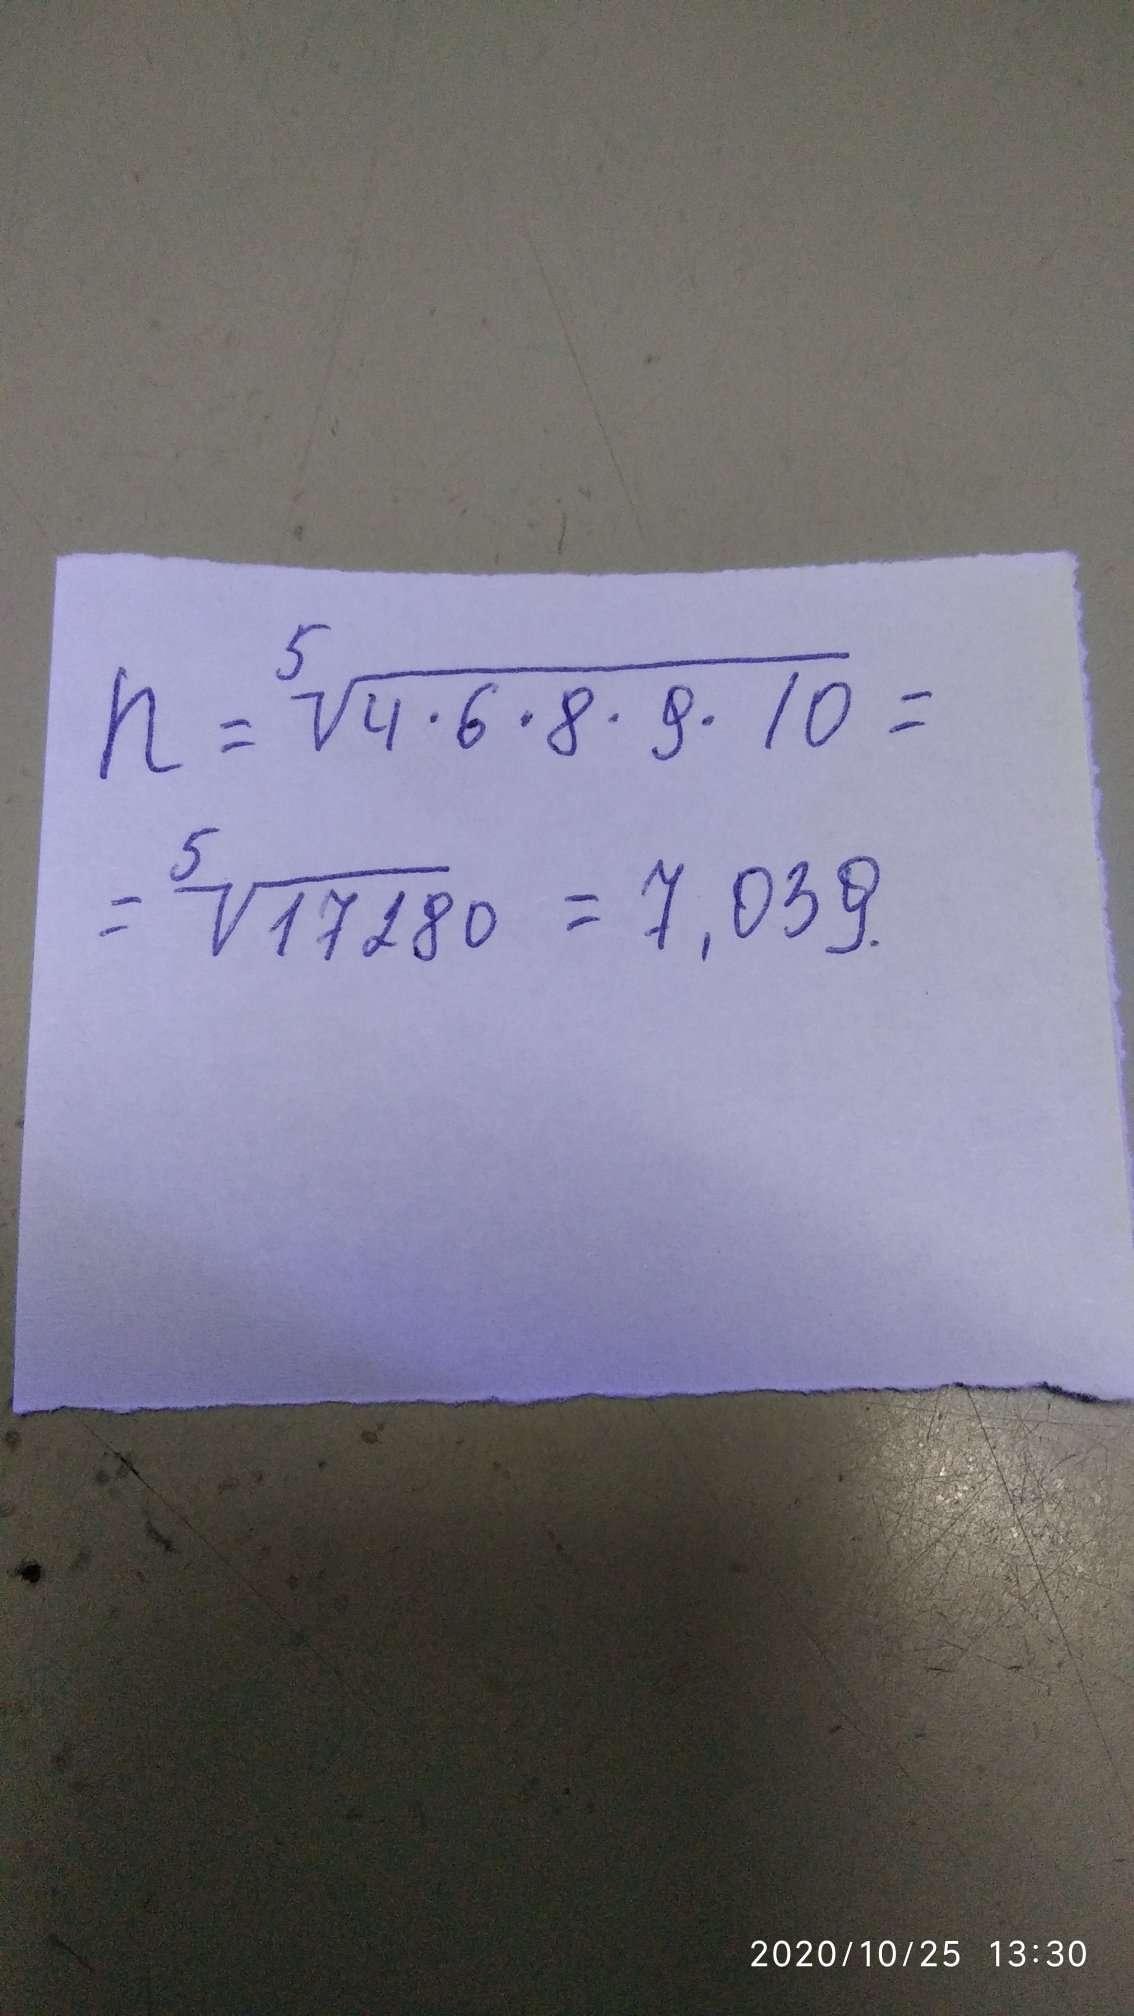 n = ⁵√4·6·8·9·10 =
= ⁵√17280 = 7,039.
2020/10/25 13:30